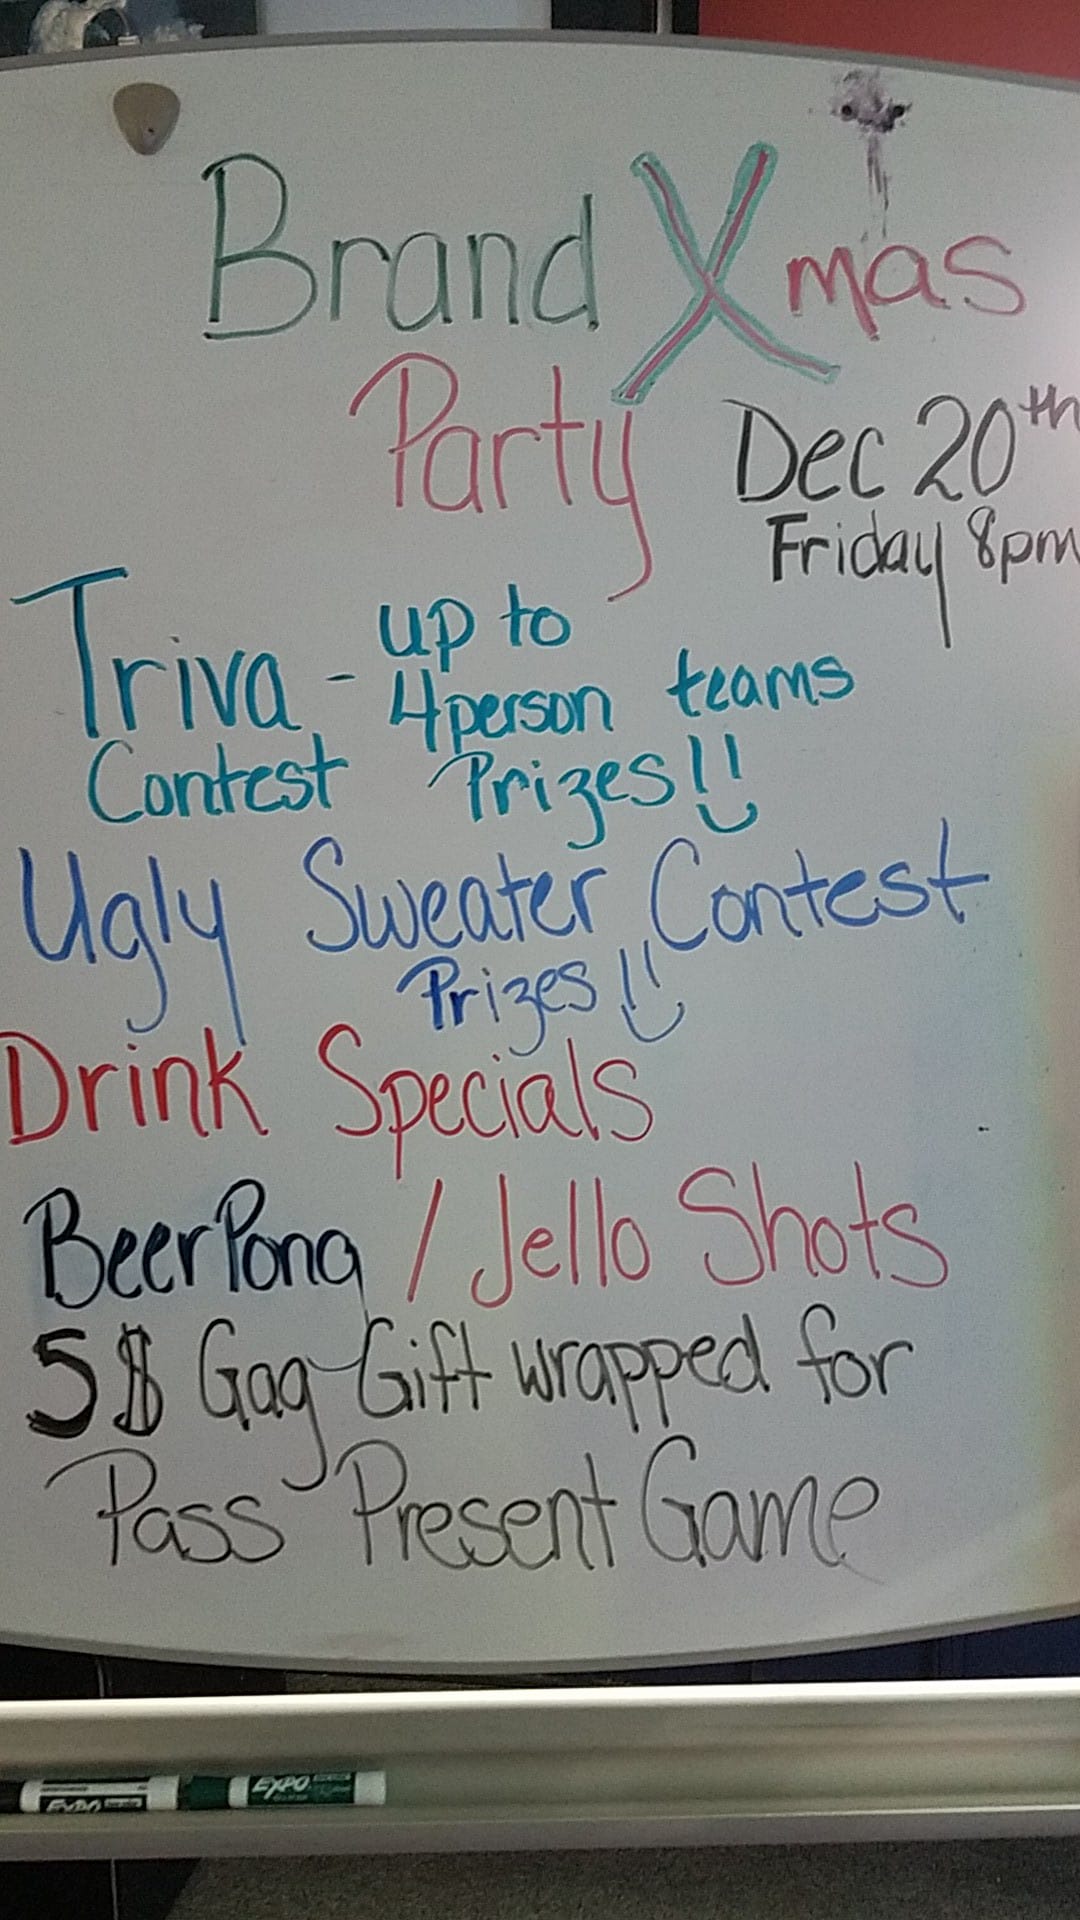 Brand Xmas
Party
Dec 20th
Friday 8pm
Triva - up to
4 person teams
Contest Prizes!!
Ugly Sweater Contest
Prizes!!
Drink Specials
Beer Pong / Jello Shots
5$ Gag Gift wrapped for
Pass Present Game
EXPO EXPO